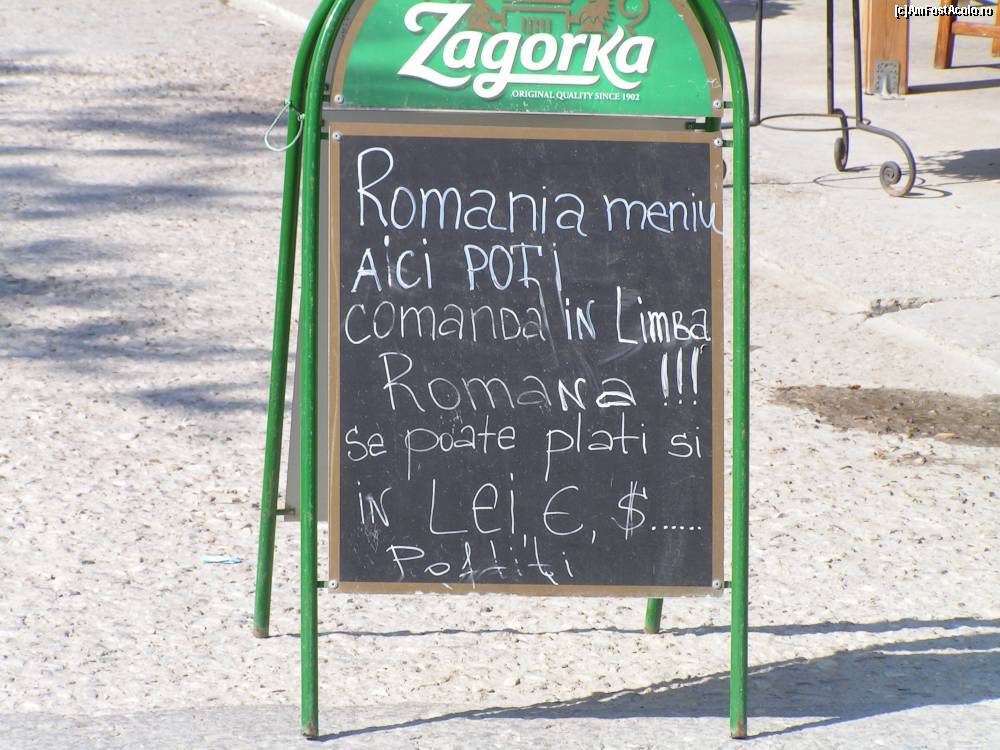 (c)AmFostAcolo.ro
Zagorka
ORIGINAL QUALITY SINCE 1902
Romania meniu
AICI POȚI
comanda IN Limba
Romana !!!
se poate plati si
in Lei, €, $......
Poftiți